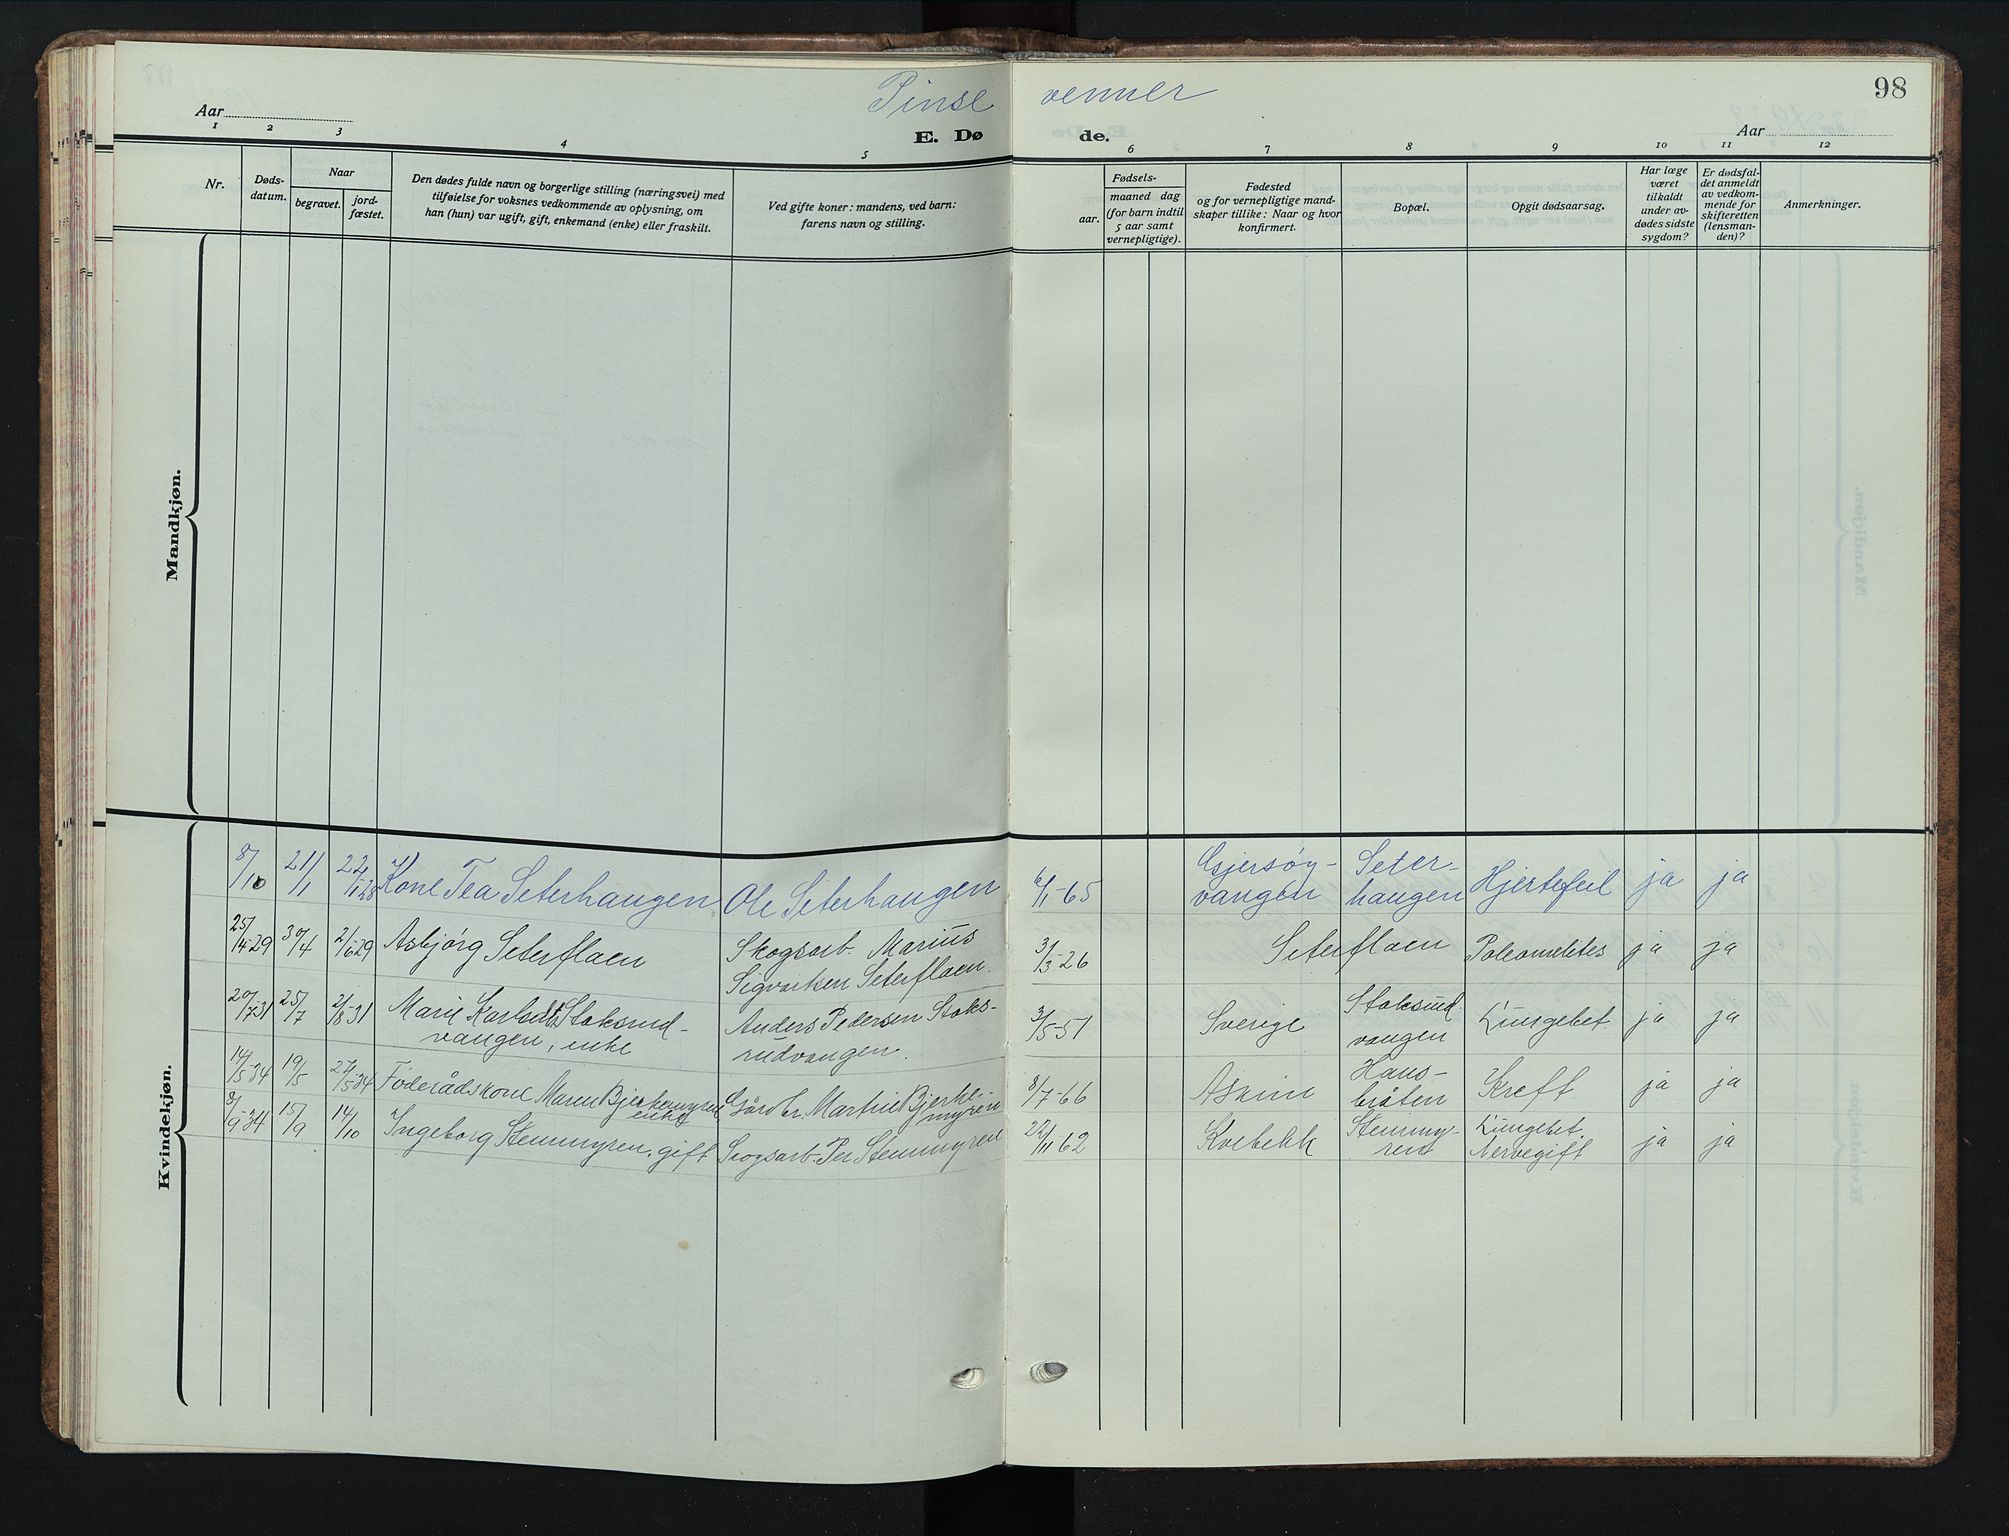 Pinse venner
98
Aar
E. Dø de.
Aar
1 2 3 4 5 6 7 8 9 10 11 12
Nr.
Døds-
datum.
Naar
begravet.
jord-
fæstet.
Den dødes fulde navn og borgerlige stilling (næringsvei) med
tilføielse for voksnes vedkommende av oplysning, om
han (hun) var ugift, gift, enkemand (enke) eller fraskilt.
Ved gifte koner: mandens, ved barn:
farens navn og stilling.
Fødsels-
aar.
maaned dag
(for barn indtil
5 aar samt
vernepligtige).
Fødested
og for vernepligtige mand-
skaper tillike: Naar og hvor
konfirmert.
Bopæl.
Opgit dødsaarsag.
Har læge
været
tilkaldt
under av-
dødes sidste
sygdom?
Er dødsfal-
det anmeldt
av vedkom-
mende for
skifteretten
(lensman-
den)?
Anmerkninger.
Mandkjøn.
Kvindekjøn.
8/10 21/1 22/1 28 Kone Tea Seterhaugen Ole Seterhaugen 6/1-65 Gjersøy-
vangen Seter-
haugen Hjertefeil ja ja
25/4-29 30/4 2/6 29 Asbjørg Seterflaen Skogsarb. Marius
Sigvartsen Seterflaen. 3/3-26 Seterflaen ja ja
20/7 31 25/7 2/8-31 Marie Stoksrud-
vangen, enke Anders Pedersen Stoks-
rudvangen. 3/5-51 Sverige Stoksrud
vangen Lungebet. ja ja
14/5-34 19/5 27/5-34 Føderådskone Maren Bjerkemyren
enke Gårdbr. Martin Bjerke-
myren 8/7-66 Askim Haus-
bråten Kreft ja ja
8/9-34 15/9 14/10 Ingeborg Stemmyren, gift Skogsarb. Per Stemmyren 22/11 62 Kvebekk Stemmy-
ren Lungebet.
Nervegift ja ja